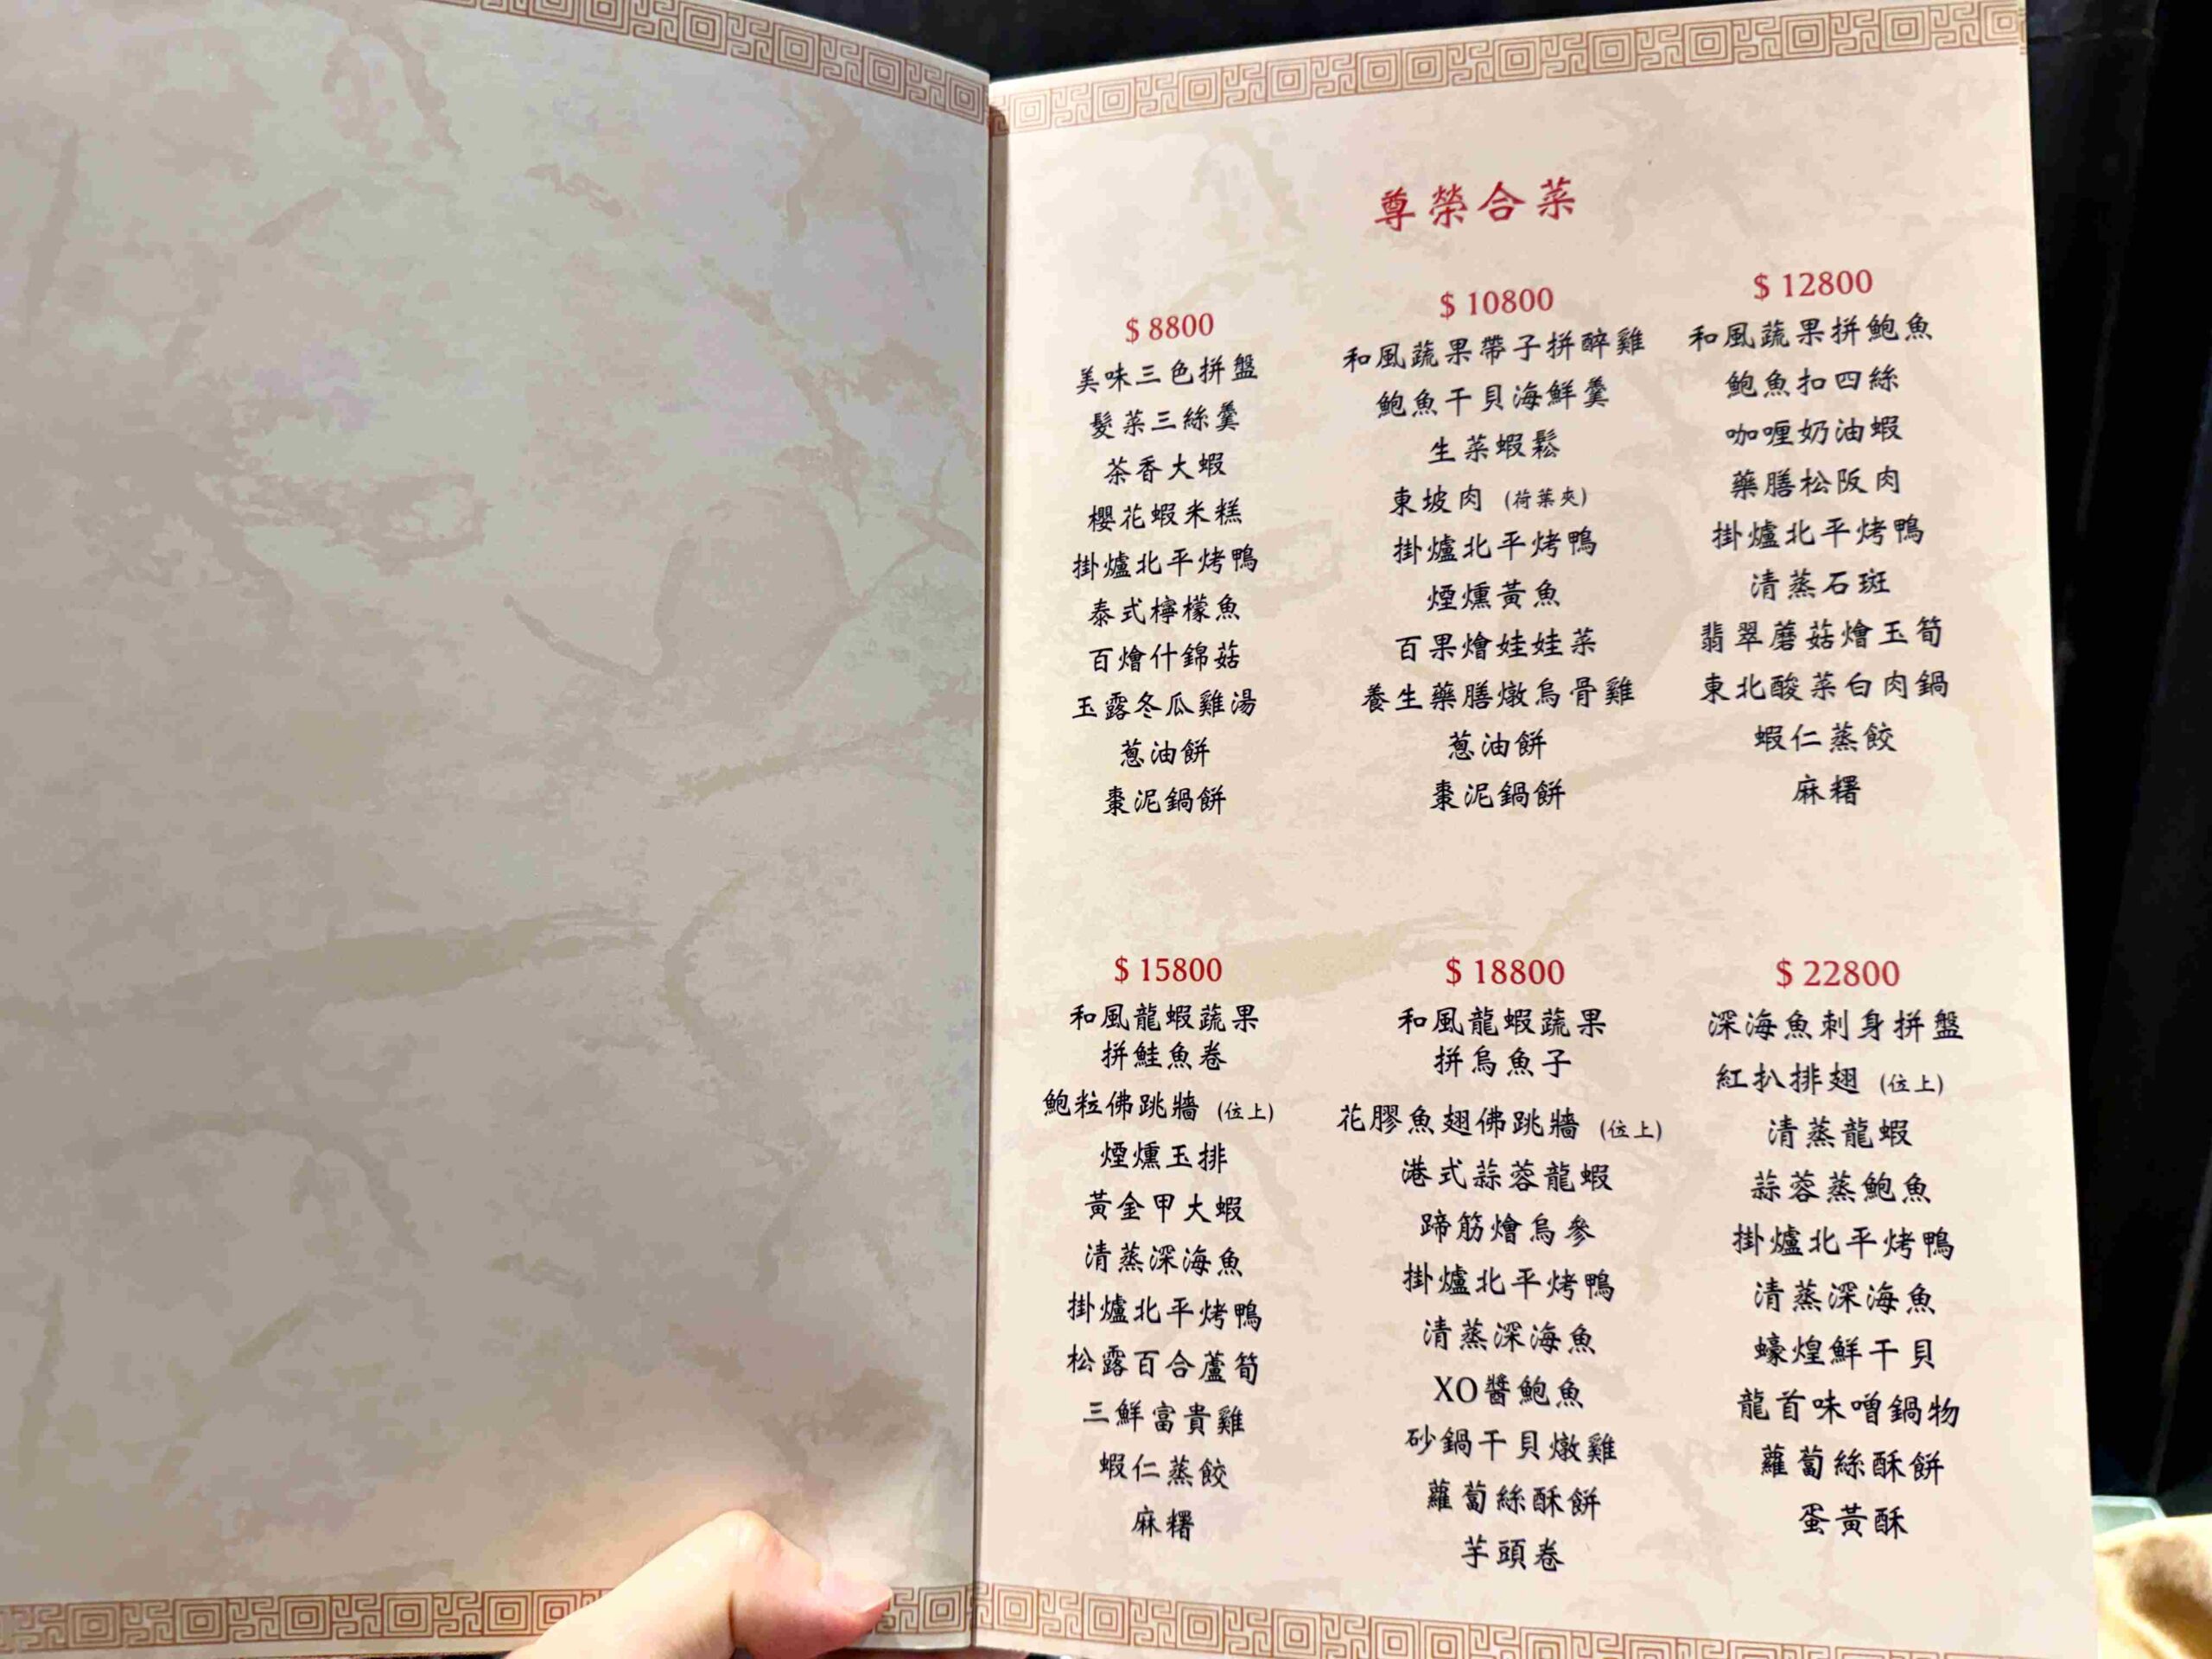 尊榮合菜
$ 8800
美味三色拼盤
髮菜三絲羹
茶香大蝦
櫻花蝦米糕
掛爐北平烤鴨
泰式檸檬魚
百燴什錦菇
玉露冬瓜雞湯
蔥油餅
棗泥鍋餅
$ 10800
和風蔬果帶子拼醉雞
鮑魚干貝海鮮羹
生菜蝦鬆
東坡肉 (荷葉夾)
掛爐北平烤鴨
煙燻黃魚
百果燴娃娃菜
養生藥膳燉烏骨雞
蔥油餅
棗泥鍋餅
$ 12800
和風蔬果拼鮑魚
鮑魚扣四絲
咖喱奶油蝦
藥膳松阪肉
掛爐北平烤鴨
清蒸石斑
翡翠蘑菇燴玉筍
東北酸菜白肉鍋
蝦仁蒸餃
麻糬
$ 15800
和風龍蝦蔬果
拼鮭魚卷
鮑粒佛跳牆 (位上)
煙燻玉排
黃金甲大蝦
清蒸深海魚
掛爐北平烤鴨
松露百合蘆筍
三鮮富貴雞
蝦仁蒸餃
麻糬
$ 18800
和風龍蝦蔬果
拼烏魚子
花膠魚翅佛跳牆 (位上)
港式蒜蓉龍蝦
蹄筋燴烏參
掛爐北平烤鴨
清蒸深海魚
XO醬鮑魚
砂鍋干貝燉雞
蘿蔔絲酥餅
芋頭卷
$ 22800
深海魚刺身拼盤
紅扒排翅 (位上)
清蒸龍蝦
蒜蓉蒸鮑魚
掛爐北平烤鴨
清蒸深海魚
蠔煌鮮干貝
龍首味噌鍋物
蘿蔔絲酥餅
蛋黃酥